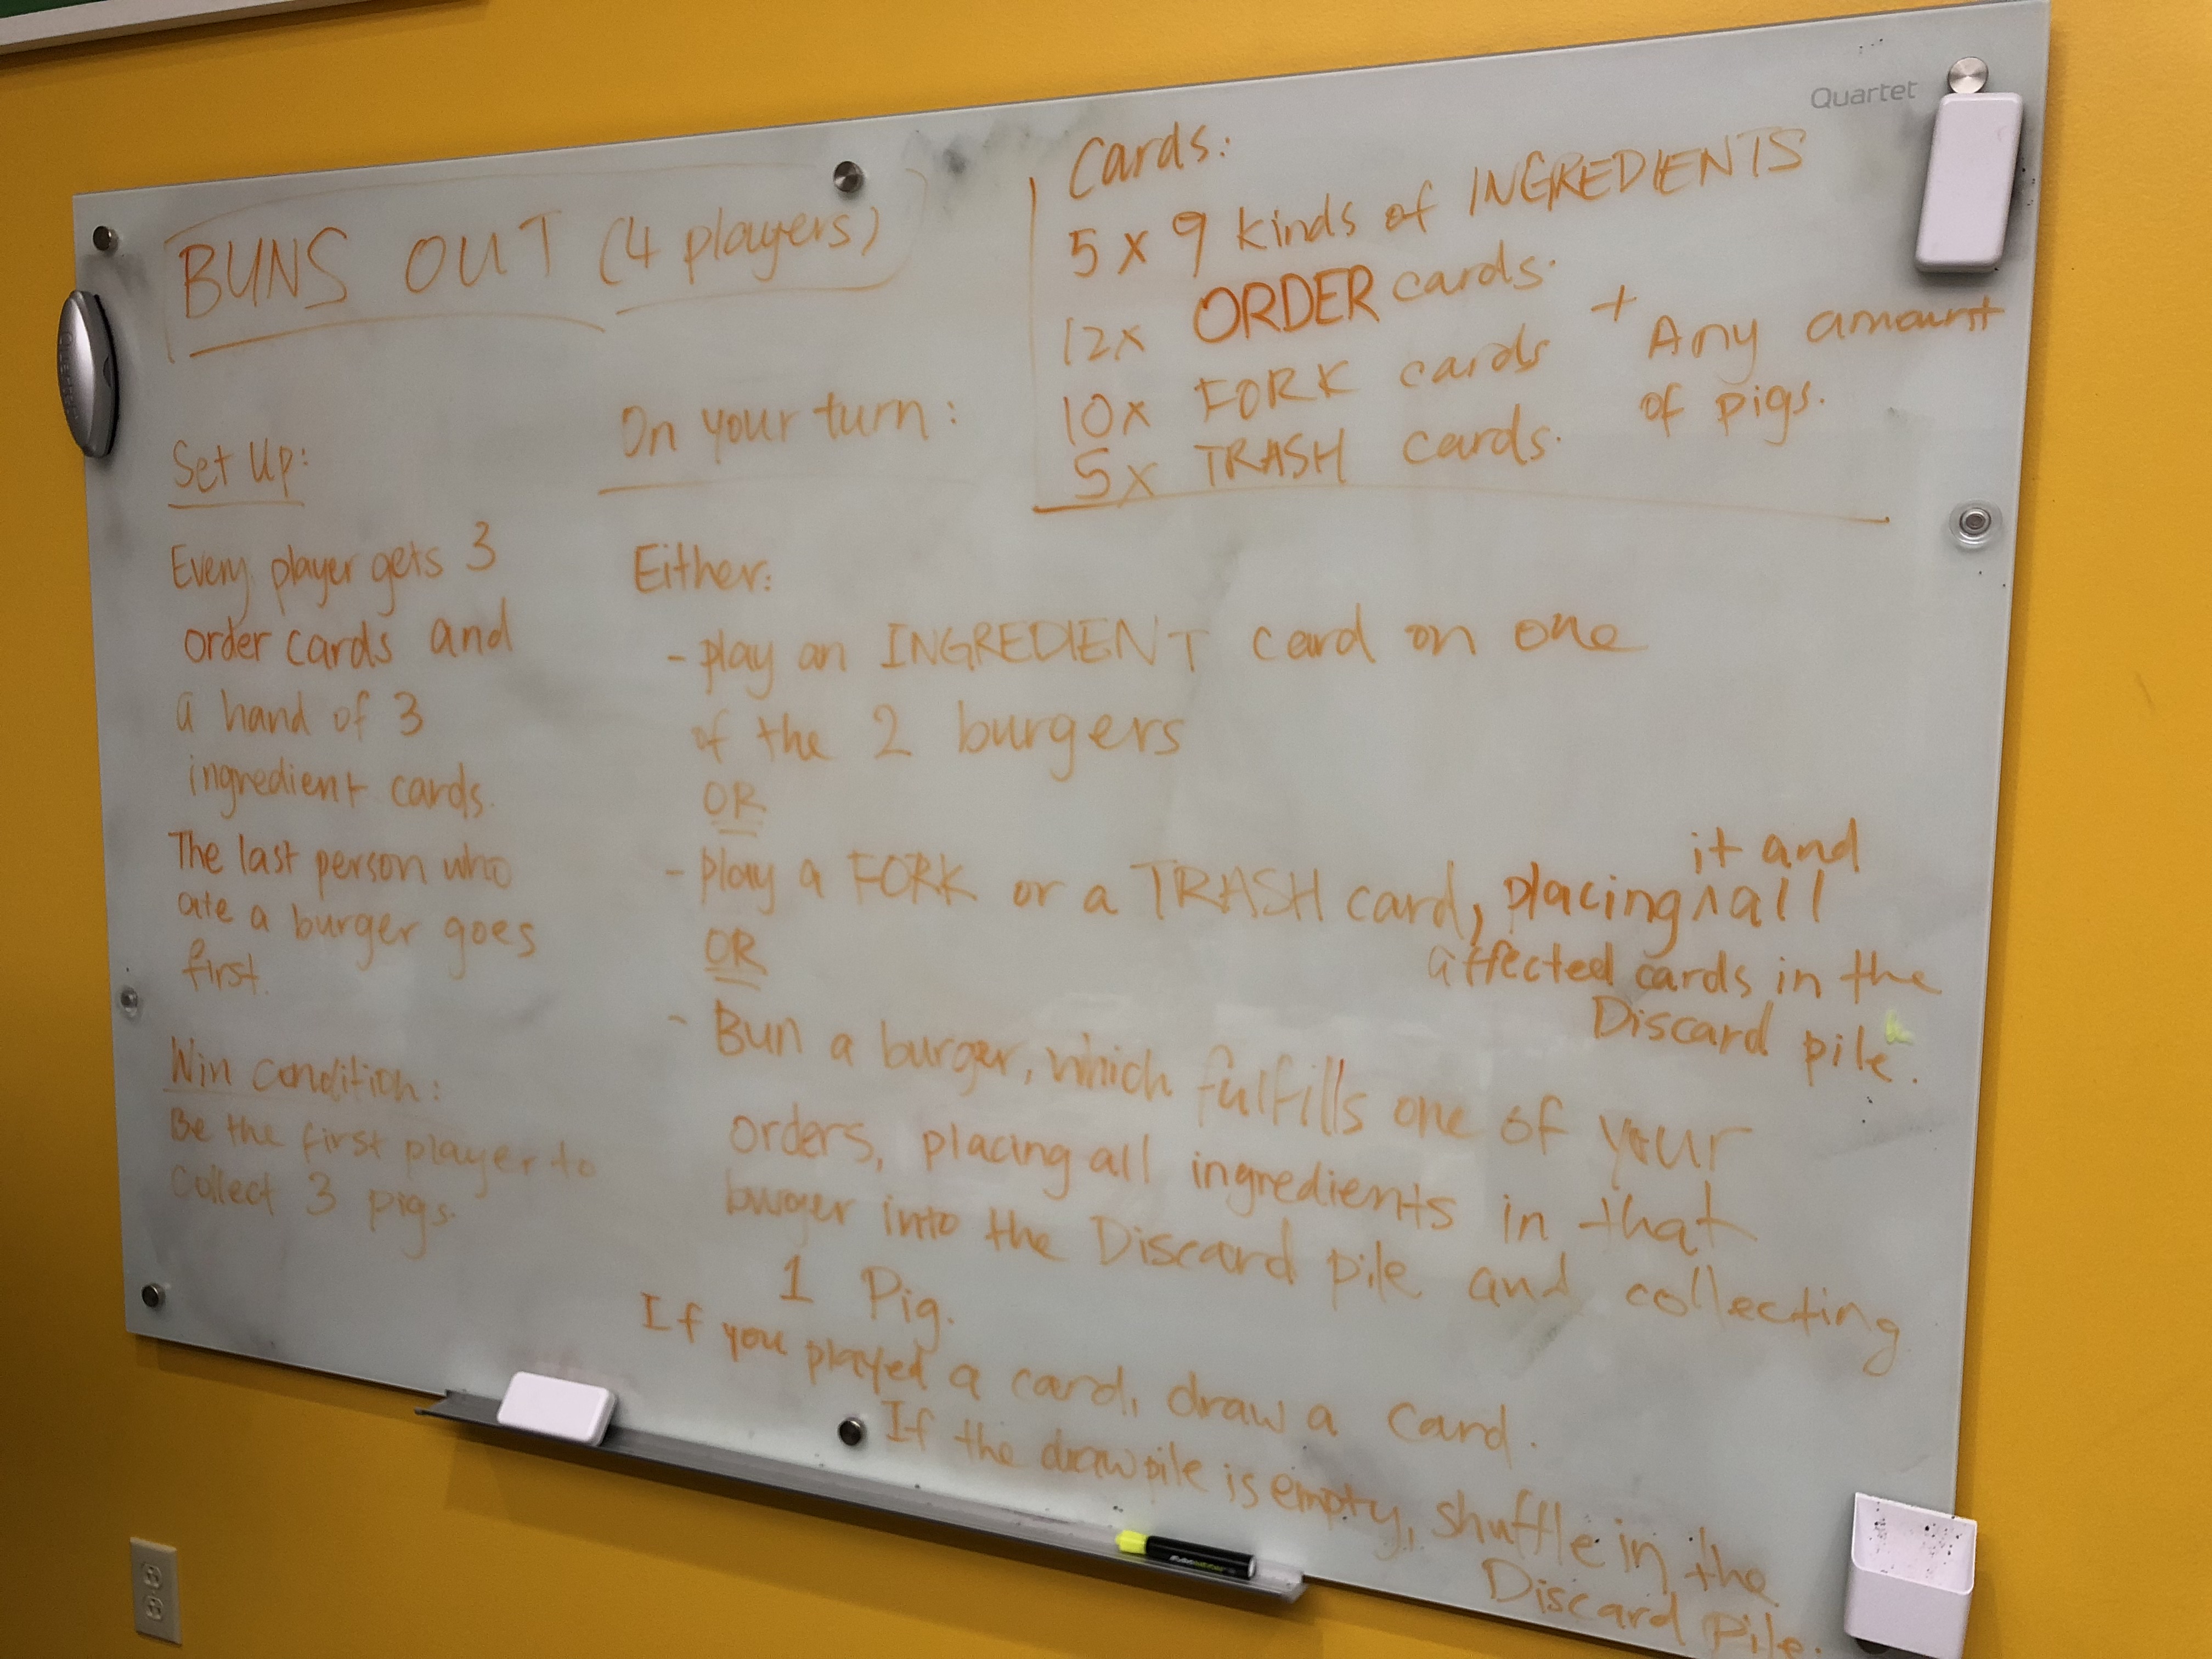 Quartet
BUNS OUT (4 players)
Cards:
5 x 9 kinds of INGREDIENTS
12x ORDER cards.
10x FORK cards
5x TRASH cards.
+ Any amount
of pigs.
Set Up:
Every player gets 3
order cards and
a hand of 3
ingredient cards.
The last person who
ate a burger goes
first.
Win condition:
Be the first player to
collect 3 pigs.
On your turn:
Either:
- play an INGREDIENT card on one
of the 2 burgers
OR
- play a FORK or a TRASH card, placing ^ all
it and
affected cards in the
Discard pile.
OR
- Bun a burger, which fulfills one of your
orders, placing all ingredients in that
burger into the Discard pile and collecting
1 Pig.
If you played a card, draw a card.
If the draw pile is empty, shuffle in the
Discard Pile.